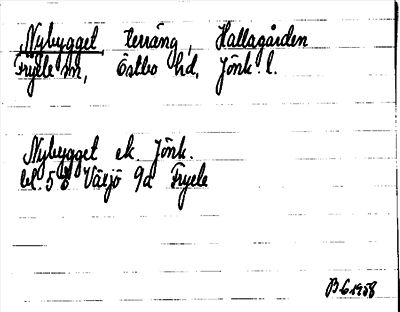 Nybygget, terräng, Hallagården
Fryele sn, Östbo hd, Jönk. l.
Nybygget ek. Jönk.
bl. 5 ö Växjö 9a Fryele
B G 1958